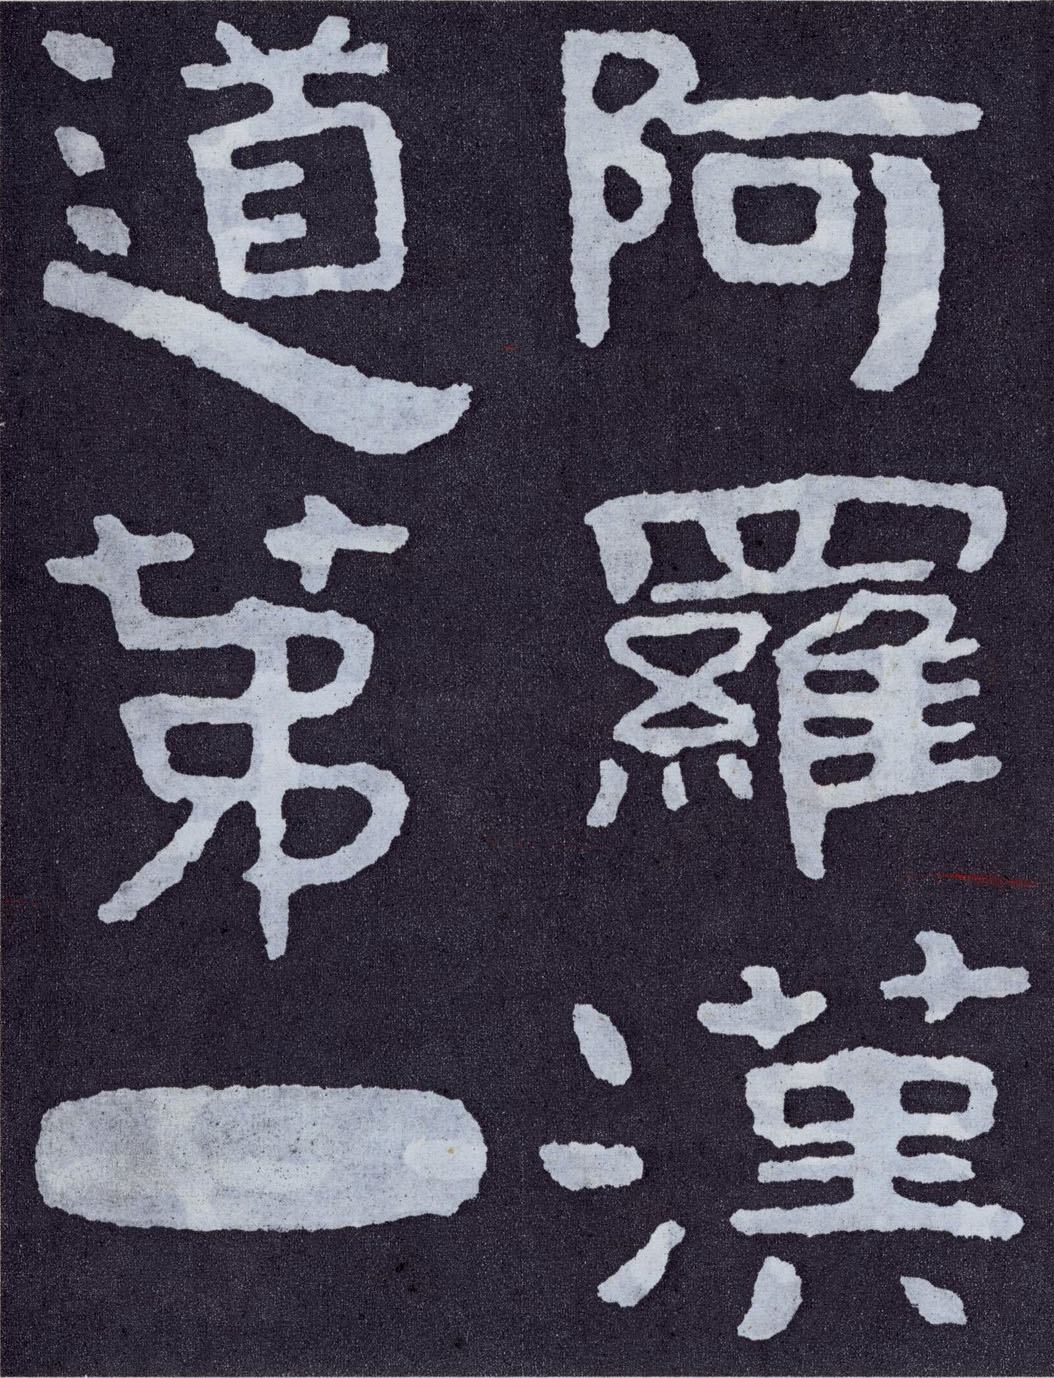 阿羅漢
道苐一